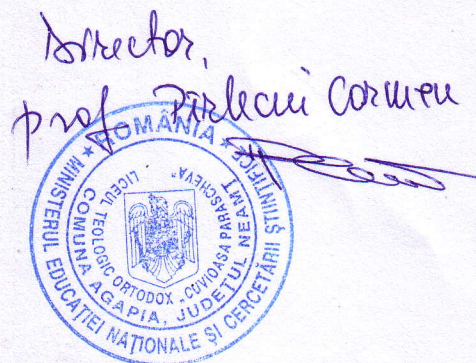 Director,
prof Pîrlecui Carmen
* ROMÂNIA *
MINISTERUL EDUCAȚIEI NAȚIONALE ȘI CERCETĂRII ȘTIINȚIFICE
COMUNA AGAPIA, JUDEȚUL NEAMȚ
LICEUL TEOLOGIC ORTODOX „CUVIOASA PARASCHEVA"